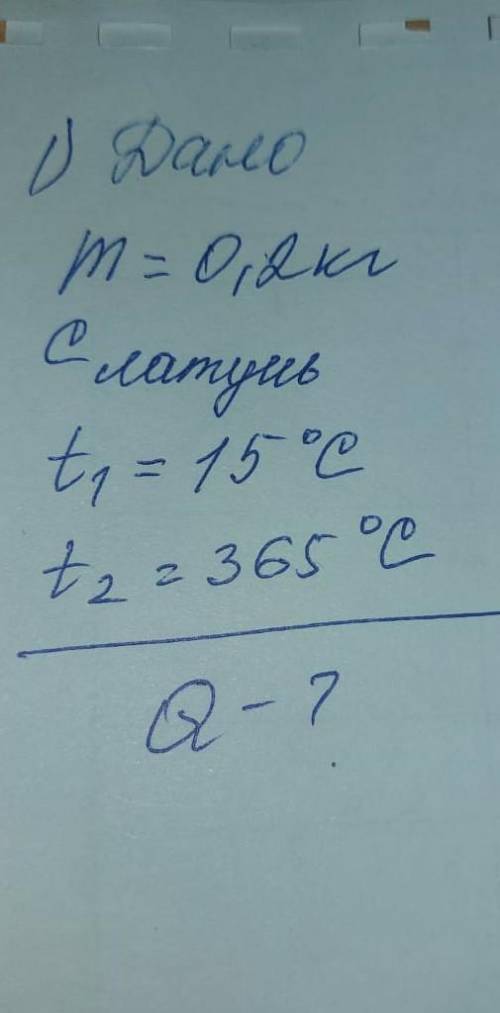 1) Дано
m = 0,2 кг
C латунь
t₁ = 15 °C
t₂ = 365 °C
Q - ?